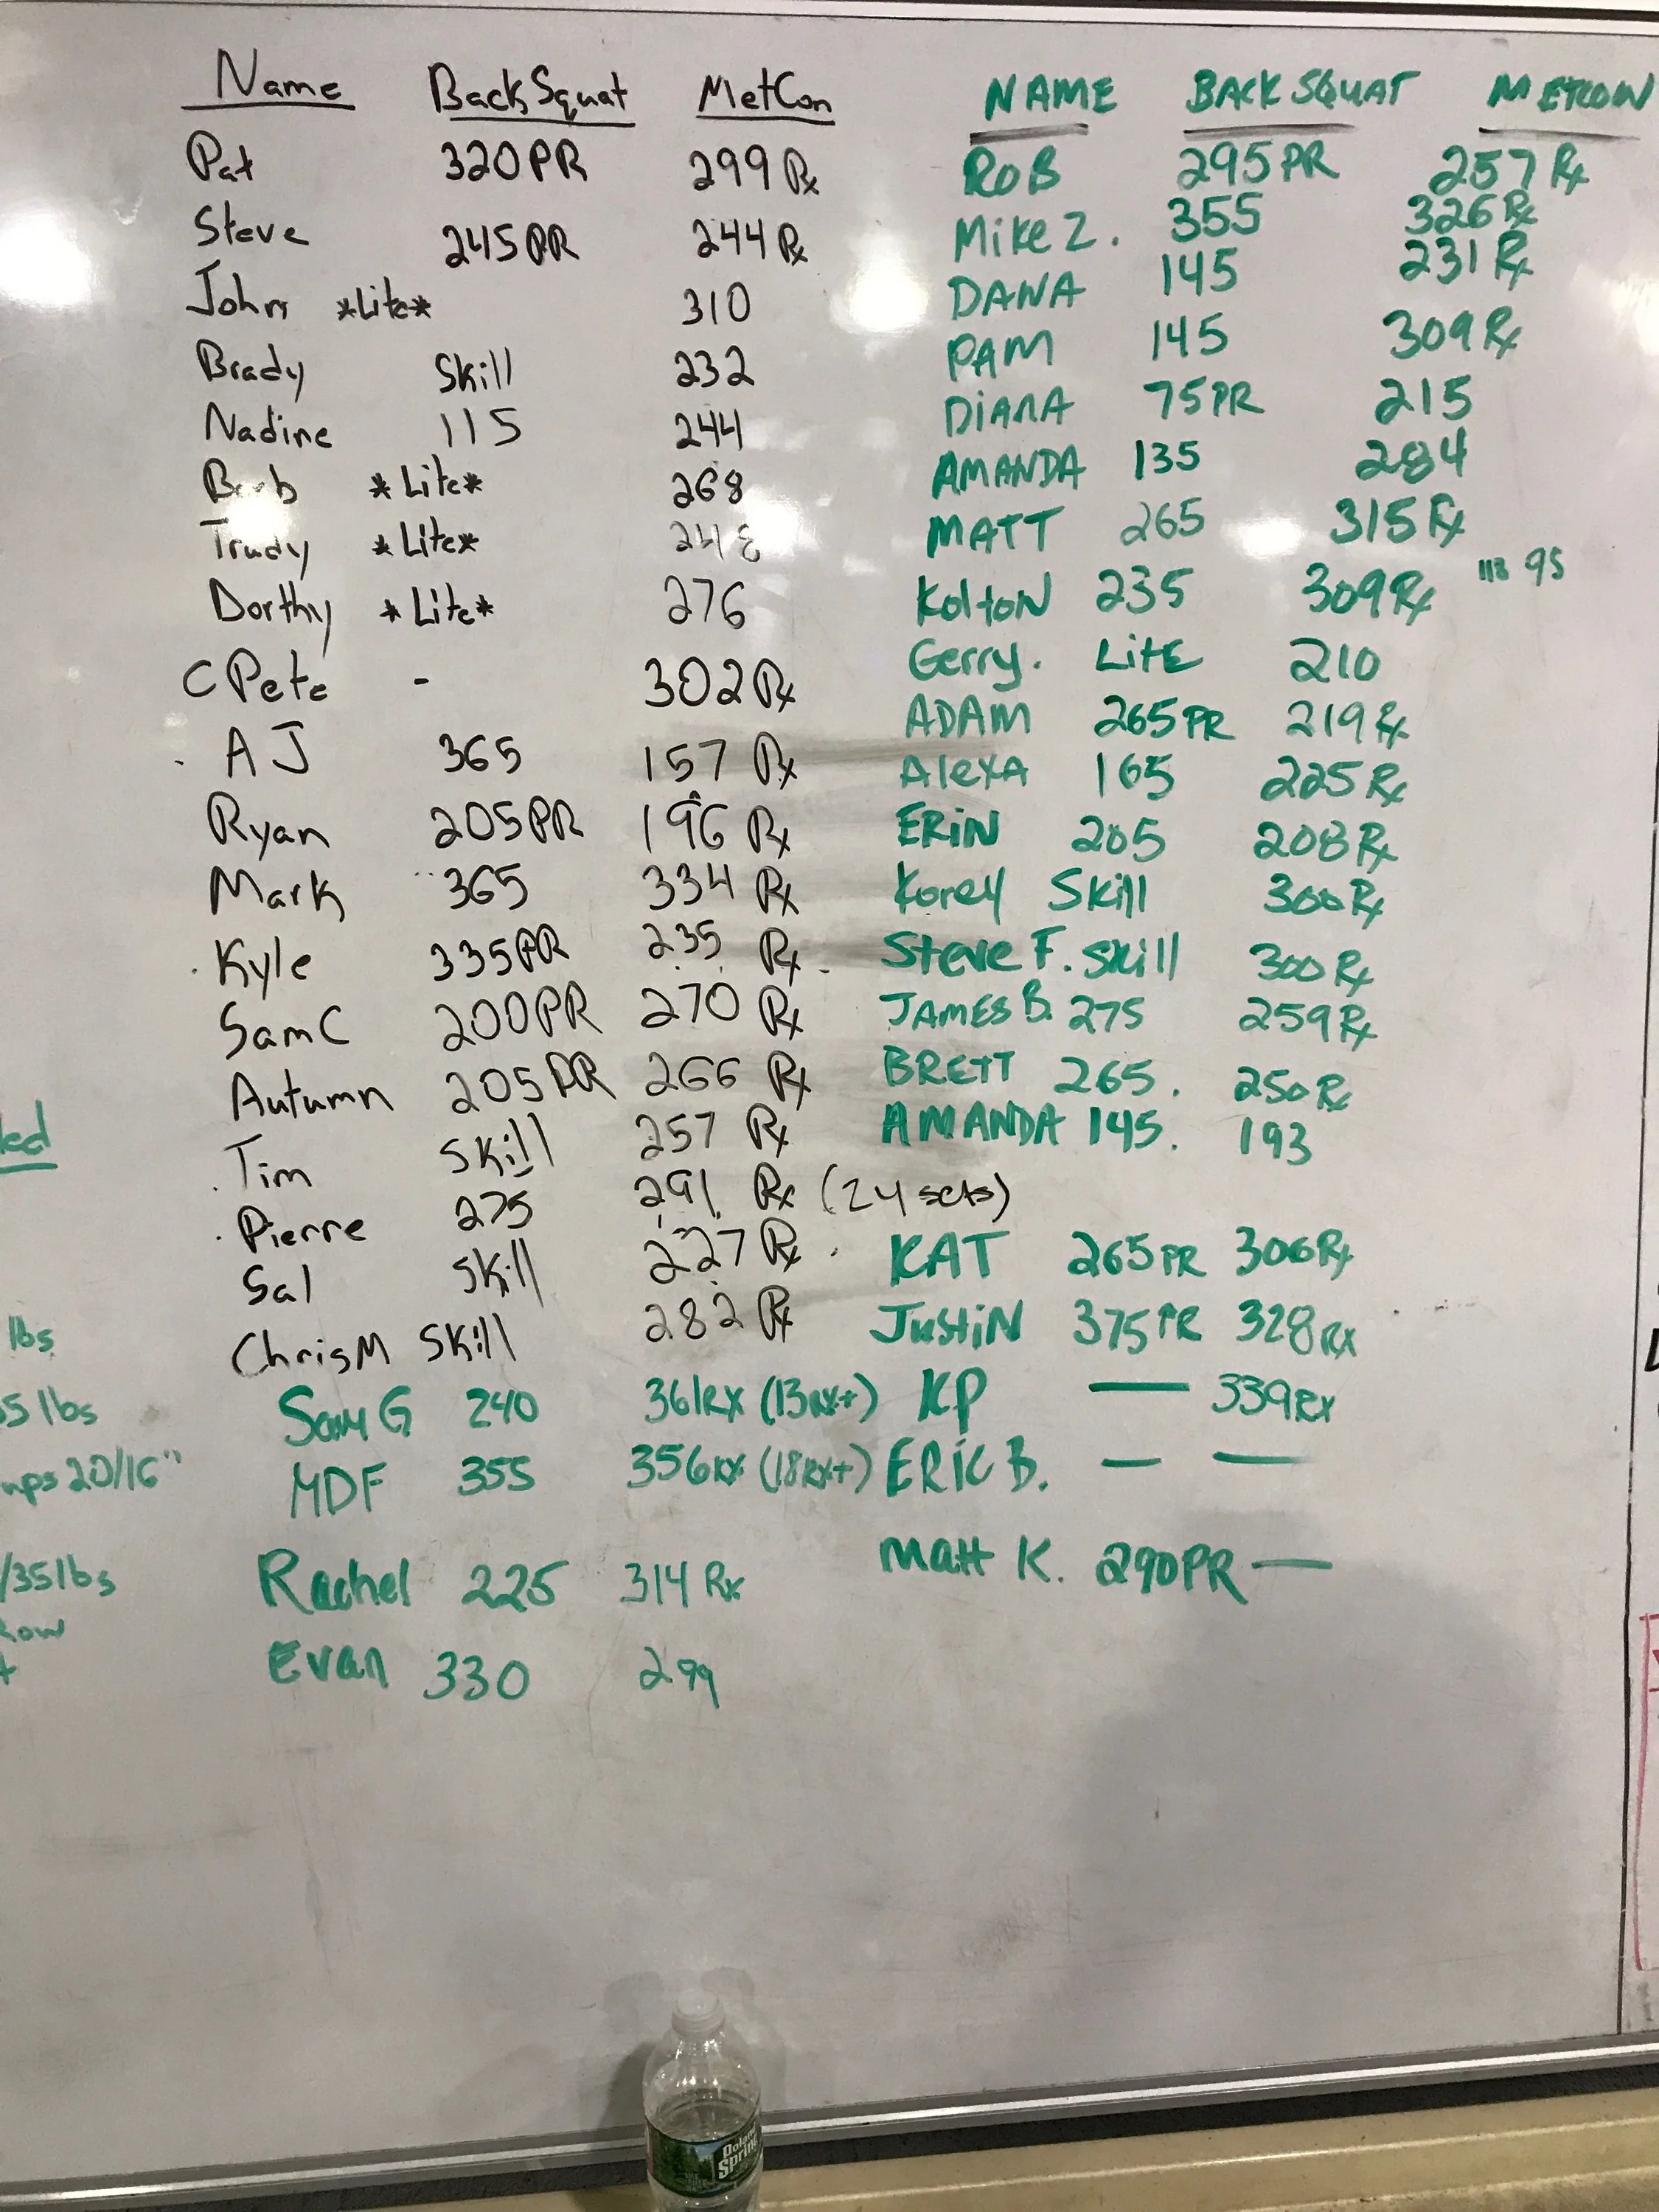 Name BackSquat MetCon
Pat 320PR 299 Rx
Steve 245PR 244 Rx
John *Lite* 310
Brady Skill 232
Nadine 115 244
Barb *Lite* 268
Trudy *Lite*
Dorthy *Lite* 276
C Pete - 302 Rx
AJ 365 157 Rx
Ryan 205PR 196 Rx
Mark 365 334 Rx
Kyle 335PR 235 Rx
Sam C 200PR 270 Rx
Autumn 205PR 266 Rx
Tim Skill 257 Rx
Pierre 275 291 Rx (24 sets)
Sal Skill 227 Rx
Chris M Skill 282 Rx
Sam G 240 361RX (13RX+)
MDF 355 356RX (18RX+)
Rachel 225 314 Rx
Evan 330 299
NAME BACK SQUAT METCON
ROB 295PR 257 Rx
Mike Z. 355 326 Rx
DANA 145 231 Rx
PAM 145 309 Rx
DiANA 75PR 215
AMANDA 135 284
MATT 265 315 Rx
KoltoN 235 309 Rx 113 95
Gerry. LitE 210
ADAM 265PR 219 Rx
AlexA 165 225 Rx
ERiN 205 208 Rx
Korey Skill 300 Rx
Steve F. Skill 300 Rx
JAMES B. 275 259 Rx
BRETT 265. 250 Rx
AMANDA 145. 193
KAT 265 PR 306 Rx
JustiN 375 PR 328 RX
KP — 339 RX
ERiC B. — —
Matt K. 290PR —
led
lbs
5 lbs
mps 20/16"
/35lbs
Row
Poland
Spring